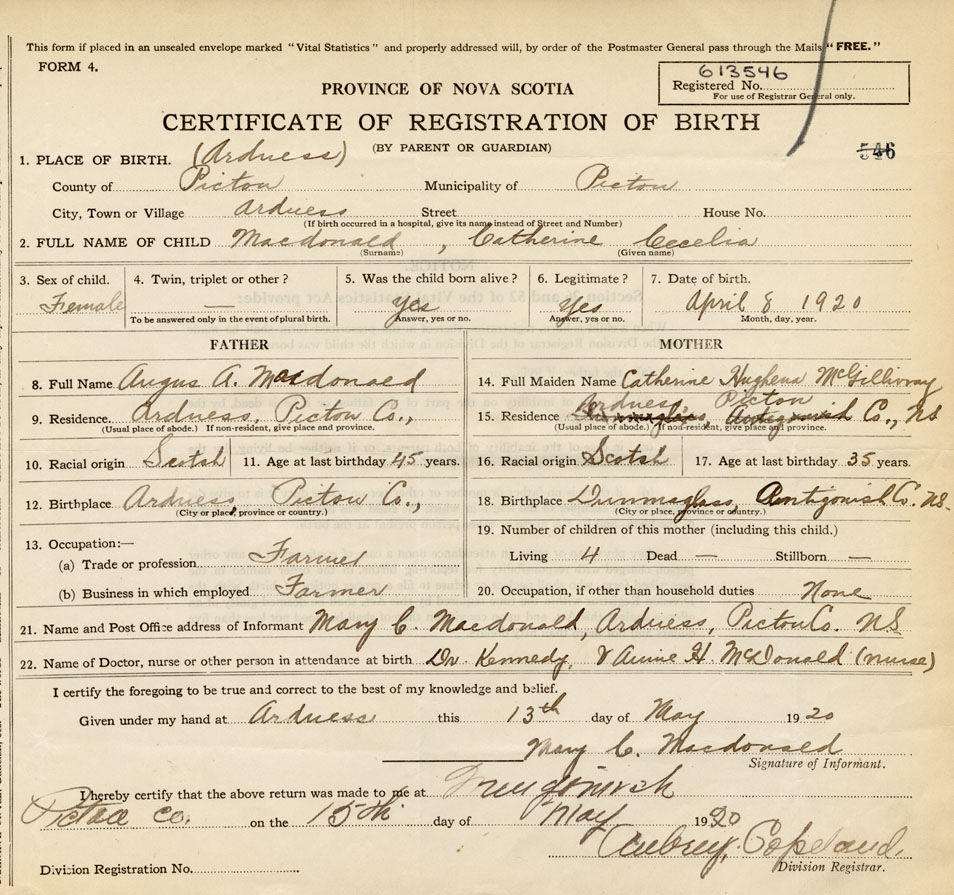 This form if placed in an unsealed envelope marked "Vital Statistics" and properly addressed will, by order of the Postmaster General pass through the Mails "FREE."
FORM 4.
613546
Registered No.
For use of Registrar General only.
PROVINCE OF NOVA SCOTIA
CERTIFICATE OF REGISTRATION OF BIRTH
(BY PARENT OR GUARDIAN)
546
1. PLACE OF BIRTH. (Ardness)
County of Pictou Municipality of Pictou
City, Town or Village Ardness Street House No.
(If birth occurred in a hospital, give its name instead of Street and Number)
2. FULL NAME OF CHILD Macdonald, Catherine Cecelia
(Surname) (Given name)
3. Sex of child. 4. Twin, triplet or other? 5. Was the child born alive? 6. Legitimate? 7. Date of birth.
Female — Yes Yes April 8 1920
To be answered only in the event of plural birth. Answer, yes or no. Answer, yes or no. Month, day, year.
FATHER
8. Full Name Angus A. Macdonald
9. Residence Ardness, Pictou Co.,
(Usual place of abode.) If non-resident, give place and province.
10. Racial origin Scotsh 11. Age at last birthday 45 years.
12. Birthplace Ardness, Pictou Co.,
(City or place, province or country.)
13. Occupation:—
(a) Trade or profession Farmer
(b) Business in which employed Farmer
MOTHER
14. Full Maiden Name Catherine Hughena McGillivray
Ardness, Pictou
15. Residence Dunmaglass, Antigonish Co., NS
(Usual place of abode.) If non-resident, give place and province.
16. Racial origin Scotsh 17. Age at last birthday 35 years.
18. Birthplace Dunmaglass, Antigonish Co. NS.
(City or place, province or country.)
19. Number of children of this mother (including this child.)
Living 4 Dead — Stillborn —
20. Occupation, if other than household duties None
21. Name and Post Office address of Informant Mary C. Macdonald, Ardness, Pictou Co. NS
22. Name of Doctor, nurse or other person in attendance at birth Dr. Kennedy, & Annie H. McDonald (nurse)
I certify the foregoing to be true and correct to the best of my knowledge and belief.
Given under my hand at Ardness this 13th day of May 1920
Mary C. Macdonald
Signature of Informant.
I hereby certify that the above return was made to me at
Pictou Co. on the 15th day of May 1920
Aubrey Copeland
Division Registration No. Division Registrar.